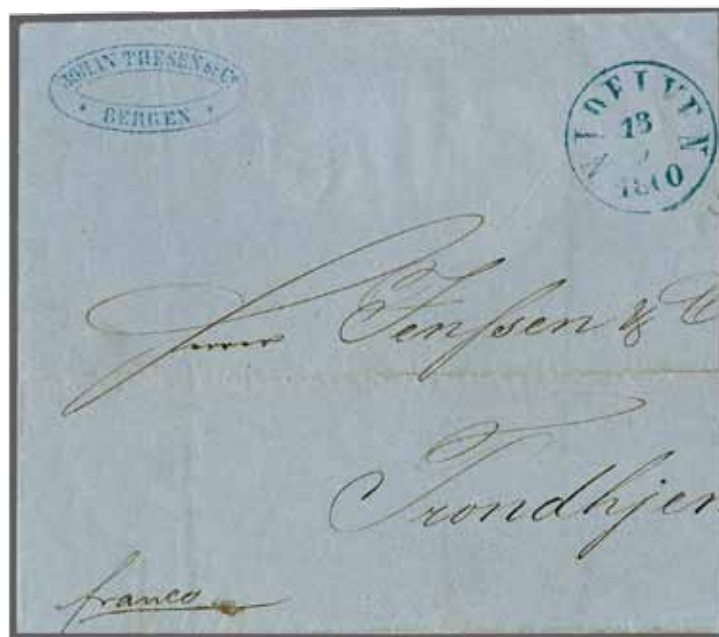 JOHAN THESEN & Co
* BERGEN *
NIDELVEN
13
1860
Herrer Jenssen & C
Trondhjem
franco